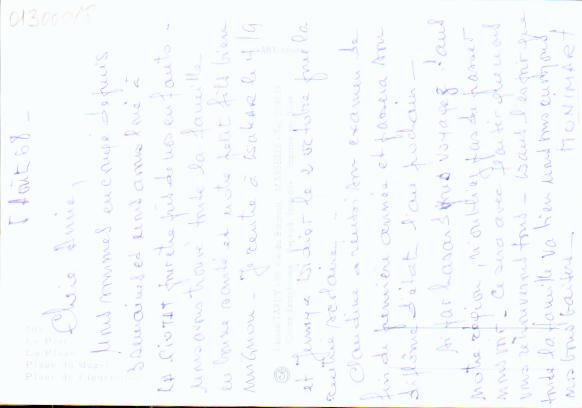 013000/15
5 Août 68 -
Chère Annie,
Nous sommes en congé depuis
3 semaines et nous avons loué à
La CIOTAT pour être près de nos enfants -
Nous avons trouvé toute la famille
en bonne santé et notre petit fils bien
mignon - Je rentre à le 4/9
et le 2 octobre pour la
rentrée scolaire -
Claudine a réussi son examen de
fin de première année et passera son
diplôme d'état l'an prochain -
Si par hasard vous voyagez dans
notre région, n'oubliez pas de passer
nous voir - Ce sera avec plaisir que nous
vous recevrons tous - Dans l'espoir que
toute la famille va bien nous vous envoyons
nos bons baisers -
MONTMART
La Plage